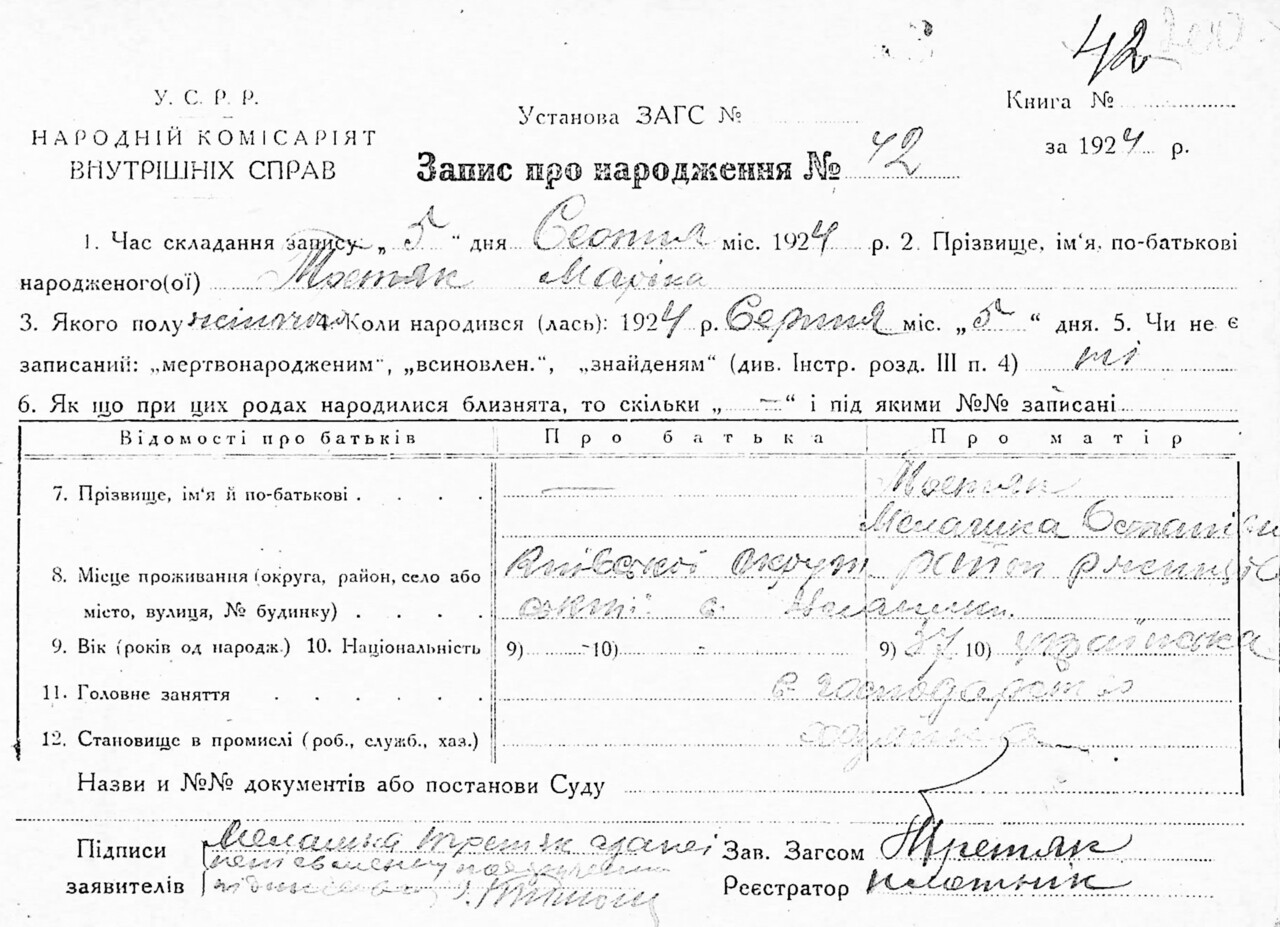 42
У. С. Р. Р.
НАРОДНІЙ КОМІСАРІЯТ
ВНУТРІШНІХ СПРАВ
Установа ЗАГС №
Книга №
за 1924 р.
Запис про народження № 42
1. Час складання запису „ 5 " дня Серпня міс. 1924 р. 2. Прізвище, ім'я, по-батькові
народженого(ої) Третяк Маріна
3. Якого полу жіночого 4. Коли народився (лась): 1924 р. Серпня міс. „ 5 “ дня. 5. Чи не є
записаний: „мертвонародженим", „всиновлен.", „знайденям“ (див. Інстр. розд. III п. 4) ні
6. Як що при цих родах народилися близнята, то скільки „ — “ і під якими №№ записані
Відомості про батьків Про батька Про матір
7. Прізвище, ім'я й по-батькові . . . . — Третяк
Мелашка
8. Місце проживання (округа, район, село або Київської округи район
місто, вулиця, № будинку) . . . . с.
9. Вік (років од народж.) 10. Національність 9) - 10) - 9) 37 10) українка
11. Головне заняття . . . . . с. господарство
12. Становище в промислі (роб., служб., хаз.) хазяйка
Назви и №№ документів або постанови Суду
Підписи Мелашка Третяк
заявителів
Зав. Загсом Третяк
Реєстратор Плотнік